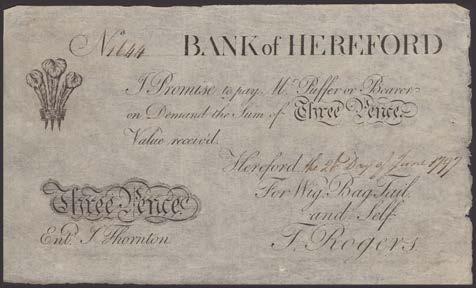 No. 1644 BANK of HEREFORD
I Promise to pay Mr. Puffer or Bearer
on Demand the Sum of Three Pence
Value receiv'd.
Hereford the 26 Day of June 1797
For Wig, Bag, Tail,
and Self
Three Pence
Entd. J Thornton
T. Rogers